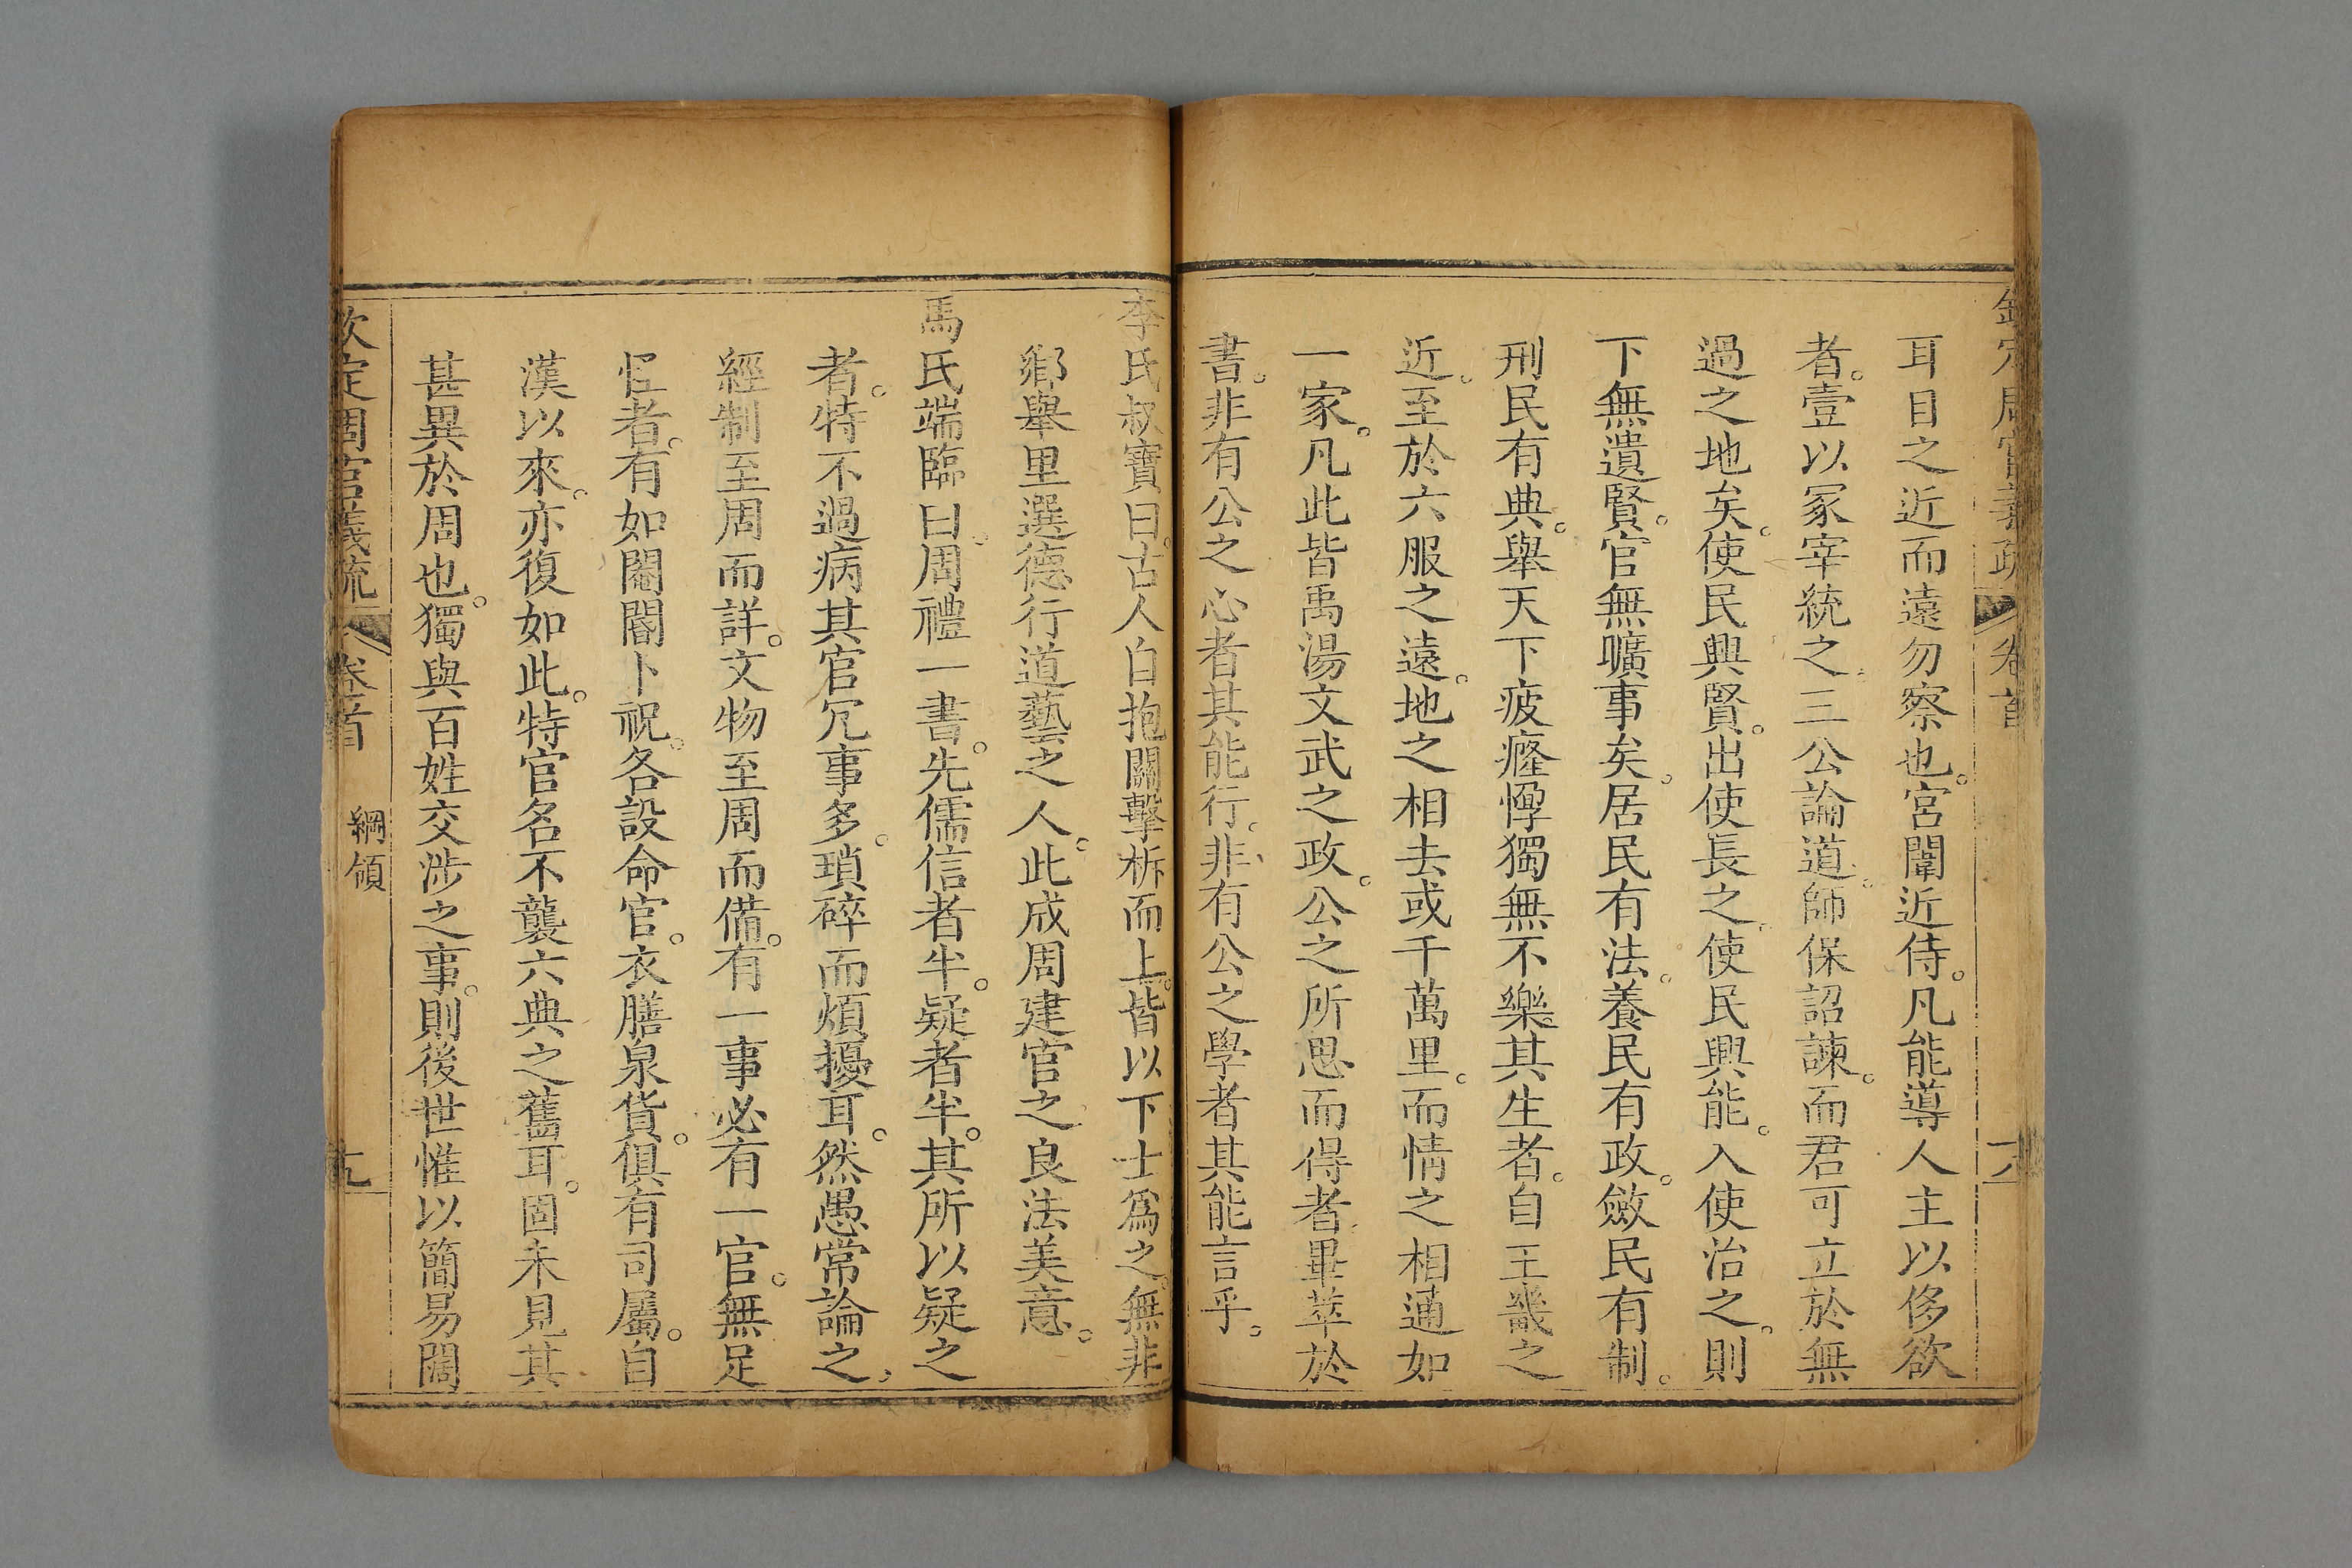 欽定周官義疏 卷首
耳目之近而遠勿察也。宮闈近侍。凡能導人主以侈欲
者。壹以冢宰統之。三公論道。師保詔諫。而君可立於無
過之地矣。使民興賢。出使長之。使民興能。入使治之。則
下無遺賢。官無曠事矣。居民有法。養民有政。斂民有制。
刑民有典。舉天下疲癃惸獨無不樂其生者。自王畿之
近。至於六服之遠。地之相去或千萬里。而情之相通如
一家。凡此皆禹湯文武之政。公之所思而得者畢萃於
書。非有公之心者其能行。非有公之學者其能言乎。
李氏叔寶曰。古人自抱關擊柝而上。皆以下士爲之。無非
鄉舉里選德行道藝之人。此成周建官之良法美意。
馬氏端臨曰。周禮一書。先儒信者半。疑者半。其所以疑之
者。特不過病其官冗事多。瑣碎而煩擾耳。然愚常論之。
經制至周而詳。文物至周而備。有一事必有一官。無足
怪者。有如閹閽卜祝。各設命官。衣膳泉貨。俱有司屬。自
漢以來。亦復如此。特官名不襲六典之舊耳。固未見其
甚異於周也。獨與百姓交涉之事。則後世惟以簡易闊
欽定周官義疏 卷首 綱領 十九